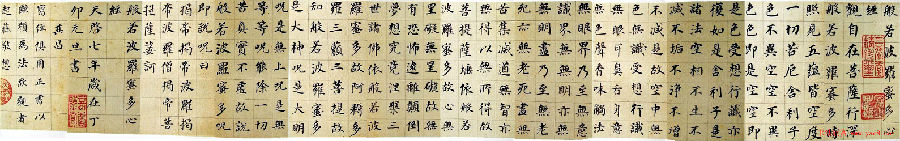 般若波羅蜜多心
經
觀自在菩薩行深
般若波羅蜜多時
照見五蘊皆空度
一切苦厄舍利子
色不異空空不異
色色即是空空即
是色受想行識亦
復如是舍利子是
諸法空相不生不
滅不垢不淨不增
不減是故空中無
色無受想行識無
眼耳鼻舌身意無
色聲香味觸法無
眼界乃至無意
識界無無明亦無
無明盡乃至無老
死亦無老死盡無
苦集滅道無智亦
無得以無所得故
菩提薩埵依般若
波羅蜜多故心無
罣礙無罣礙故無
有恐怖遠離顛倒
夢想究竟涅槃三
世諸佛依般若波
羅蜜多故得阿耨多
羅三藐三菩提故
知般若波羅蜜多
是大神呪是大明
呪是無上呪是無
等等呪能除一切
苦真實不虛故說
般若波羅蜜多呪
即說呪曰
揭帝揭帝般羅揭
帝般羅僧揭帝菩
提薩婆訶
般若波羅蜜多心
經
天啓七年歲在丁
卯元旦書
其昌
寫經須用正書以
歐顏為法欲觀者
起莊敬想